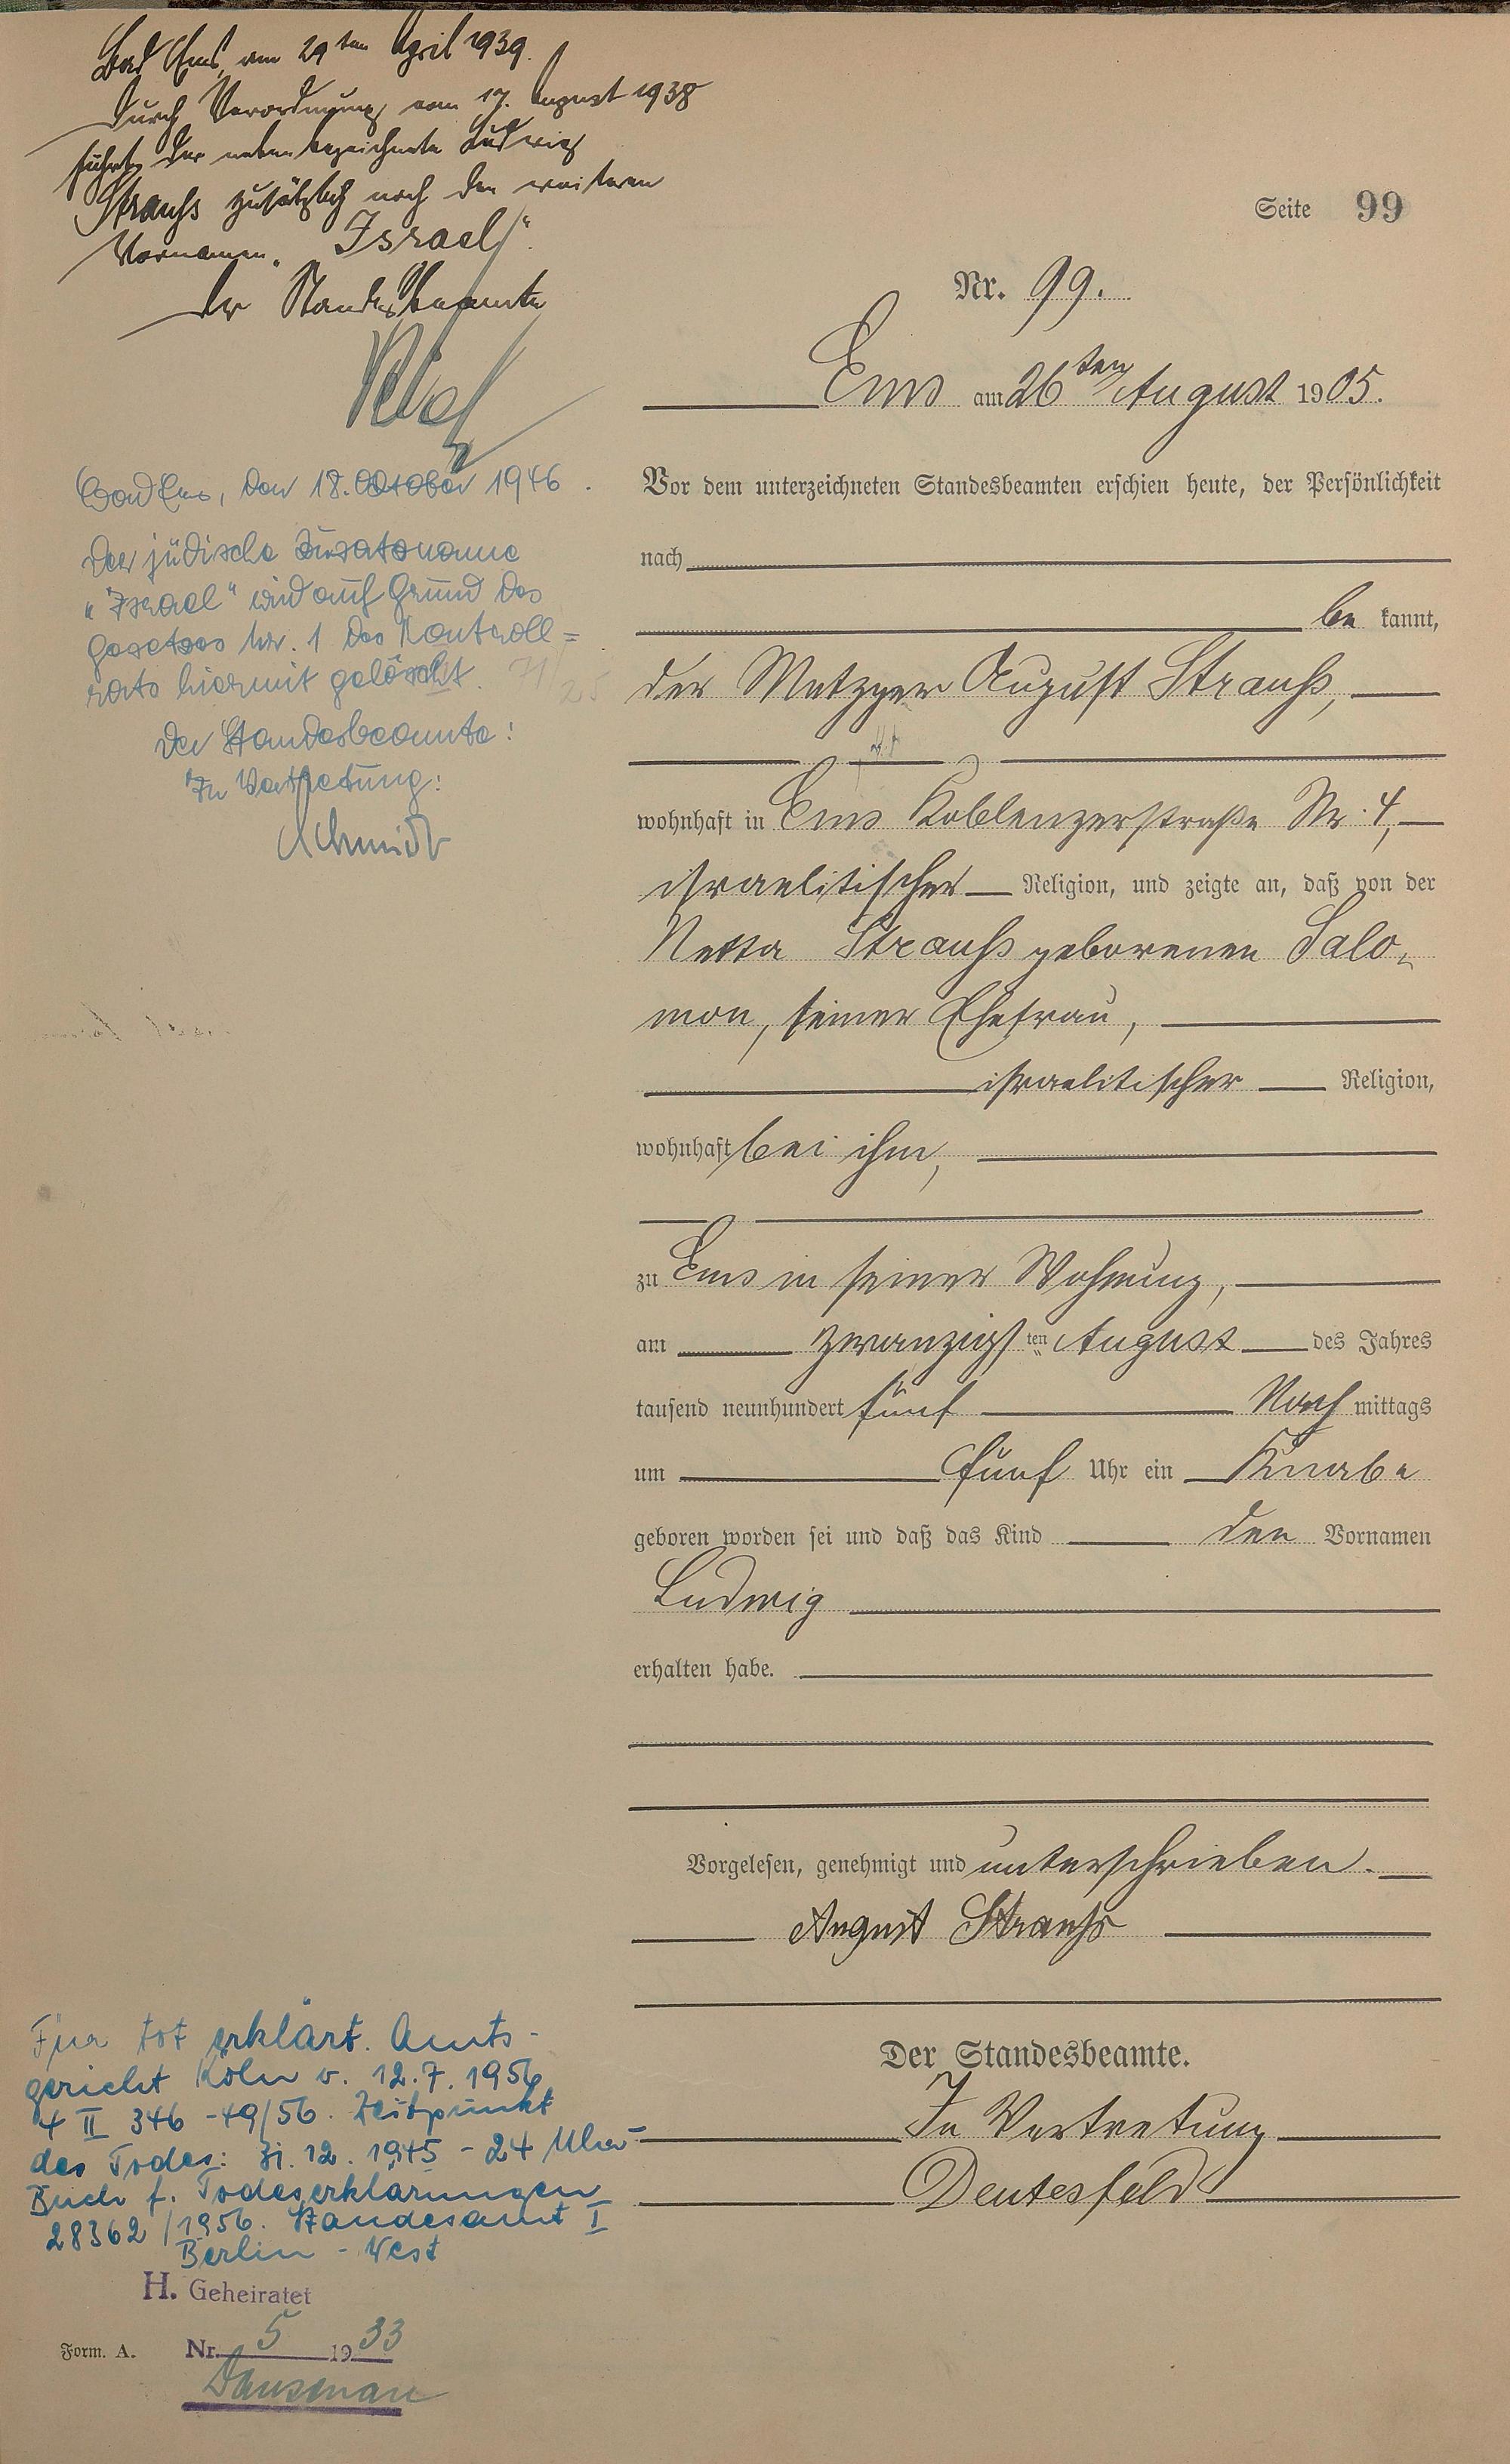 Bad Ems, am 29ten April 1939.
Durch Verordnung vom 17. August 1938
führt der nebenbezeichnete Ludwig
Strauß zusätzlich noch den weiteren
Vornamen „Israel“.
Der Standesbeamte
Bad Ems, den 18. Oktober 1946.
Der jüdische Zusatzname
„Israel“ wird auf Grund des
Gesetzes Nr. 1 des Kontroll=
rats hiermit gelöscht.
Der Standesbeamte:
In Vertretung:
Schmidt
Seite 99
Nr. 99.
Ems am 26ten August 1905.
Vor dem unterzeichneten Standesbeamten erschien heute, der Persönlichkeit
nach
be kannt,
der Metzger August Strauß,
wohnhaft in Ems Koblenzerstraße Nr. 4,
israelitischer Religion, und zeigte an, daß von der
Netta Strauß geborenen Salo-
mon, seiner Ehefrau,
israelitischer Religion,
wohnhaft bei ihm,
zu Ems in seiner Wohnung,
am zwanzigsten August des Jahres
tausend neunhundert fünf Nach mittags
um fünf Uhr ein Knabe
geboren worden sei und daß das Kind den Vornamen
Ludwig
erhalten habe.
Vorgelesen, genehmigt und unterschrieben.
August Strauß
Der Standesbeamte.
In Vertretung
Deutesfeld
Für tot erklärt. Amts-
gericht Köln v. 12.7.1956
4 II 346 - 49/56. Zeitpunkt
des Todes: 31.12.1945 - 24 Uhr
Buch f. Todeserklärungen
28362/1956. Standesamt I
Berlin - West
H. Geheiratet
Form. A. Nr. 5 1933
Dausenau